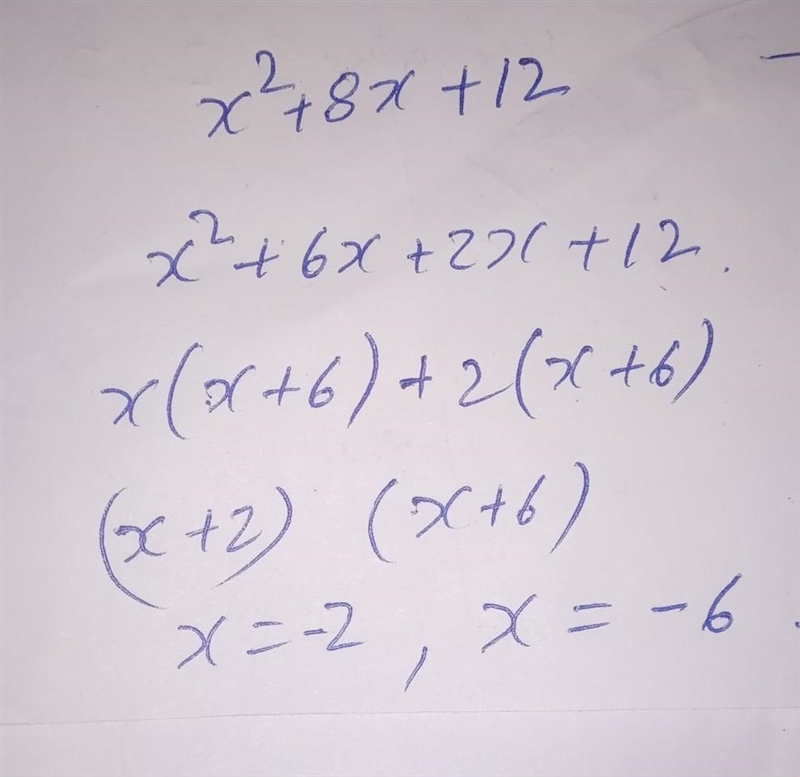 x²+8x+12
x²+6x+2x+12.
x(x+6)+2(x+6)
(x+2) (x+6)
x=-2, x=-6.